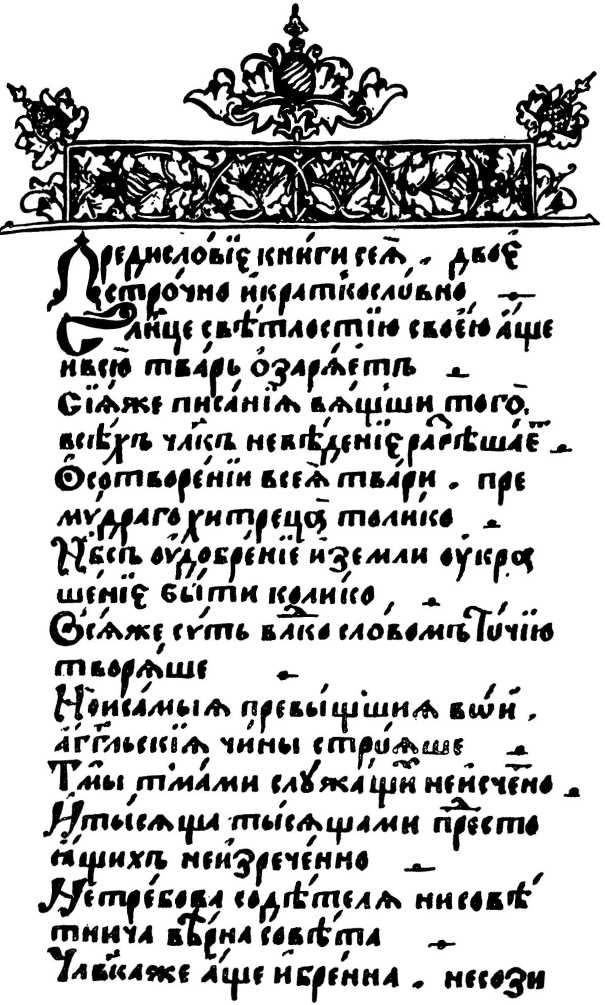 Предисло́вїе кни́ги сея̀. двоѐ
стро́чно и҆ кра́ткосло́вно
Со́лнце свѣ́тлостїю свое́ю а҆́ще
и҆ всю̀ тва́рь ѡ҆заря́етъ
Сїѧ́же писа́нїѧ вѧ́щши того̀
всѣ́хъ чл҃къ невѣ́денїе разрѣша́етъ
Ѡ҆ сотворе́нїи всеѧ̀ тва́ри. пре
му́драго хитреца̀ толи́ко
Нб҃съ оу҆добре́нїе и҆ земли оу҆кра
ше́нїе бы́ти коли́ко
Всѧ́же су́ть влⷣко словомъ ти́ точїю
творѧ́ше
Но и҆ са́мыѧ превы́шшиѧ во́и.
а҆́гг҃льскїѧ чи́ны стро́ѧше
Тмы̀ тма́ми слу́жащїи неисче́тено
И҆ ты́сѧща ты́сѧщами пре́дсто
ѧ҆́щихъ неи҆зрече́нно
Не тре́бова содѣ́телѧ ни совѣ́
тнича вѣ́рна совѣ́та
Чл҃вка же а҆́ще и҆ бре́нна. несози